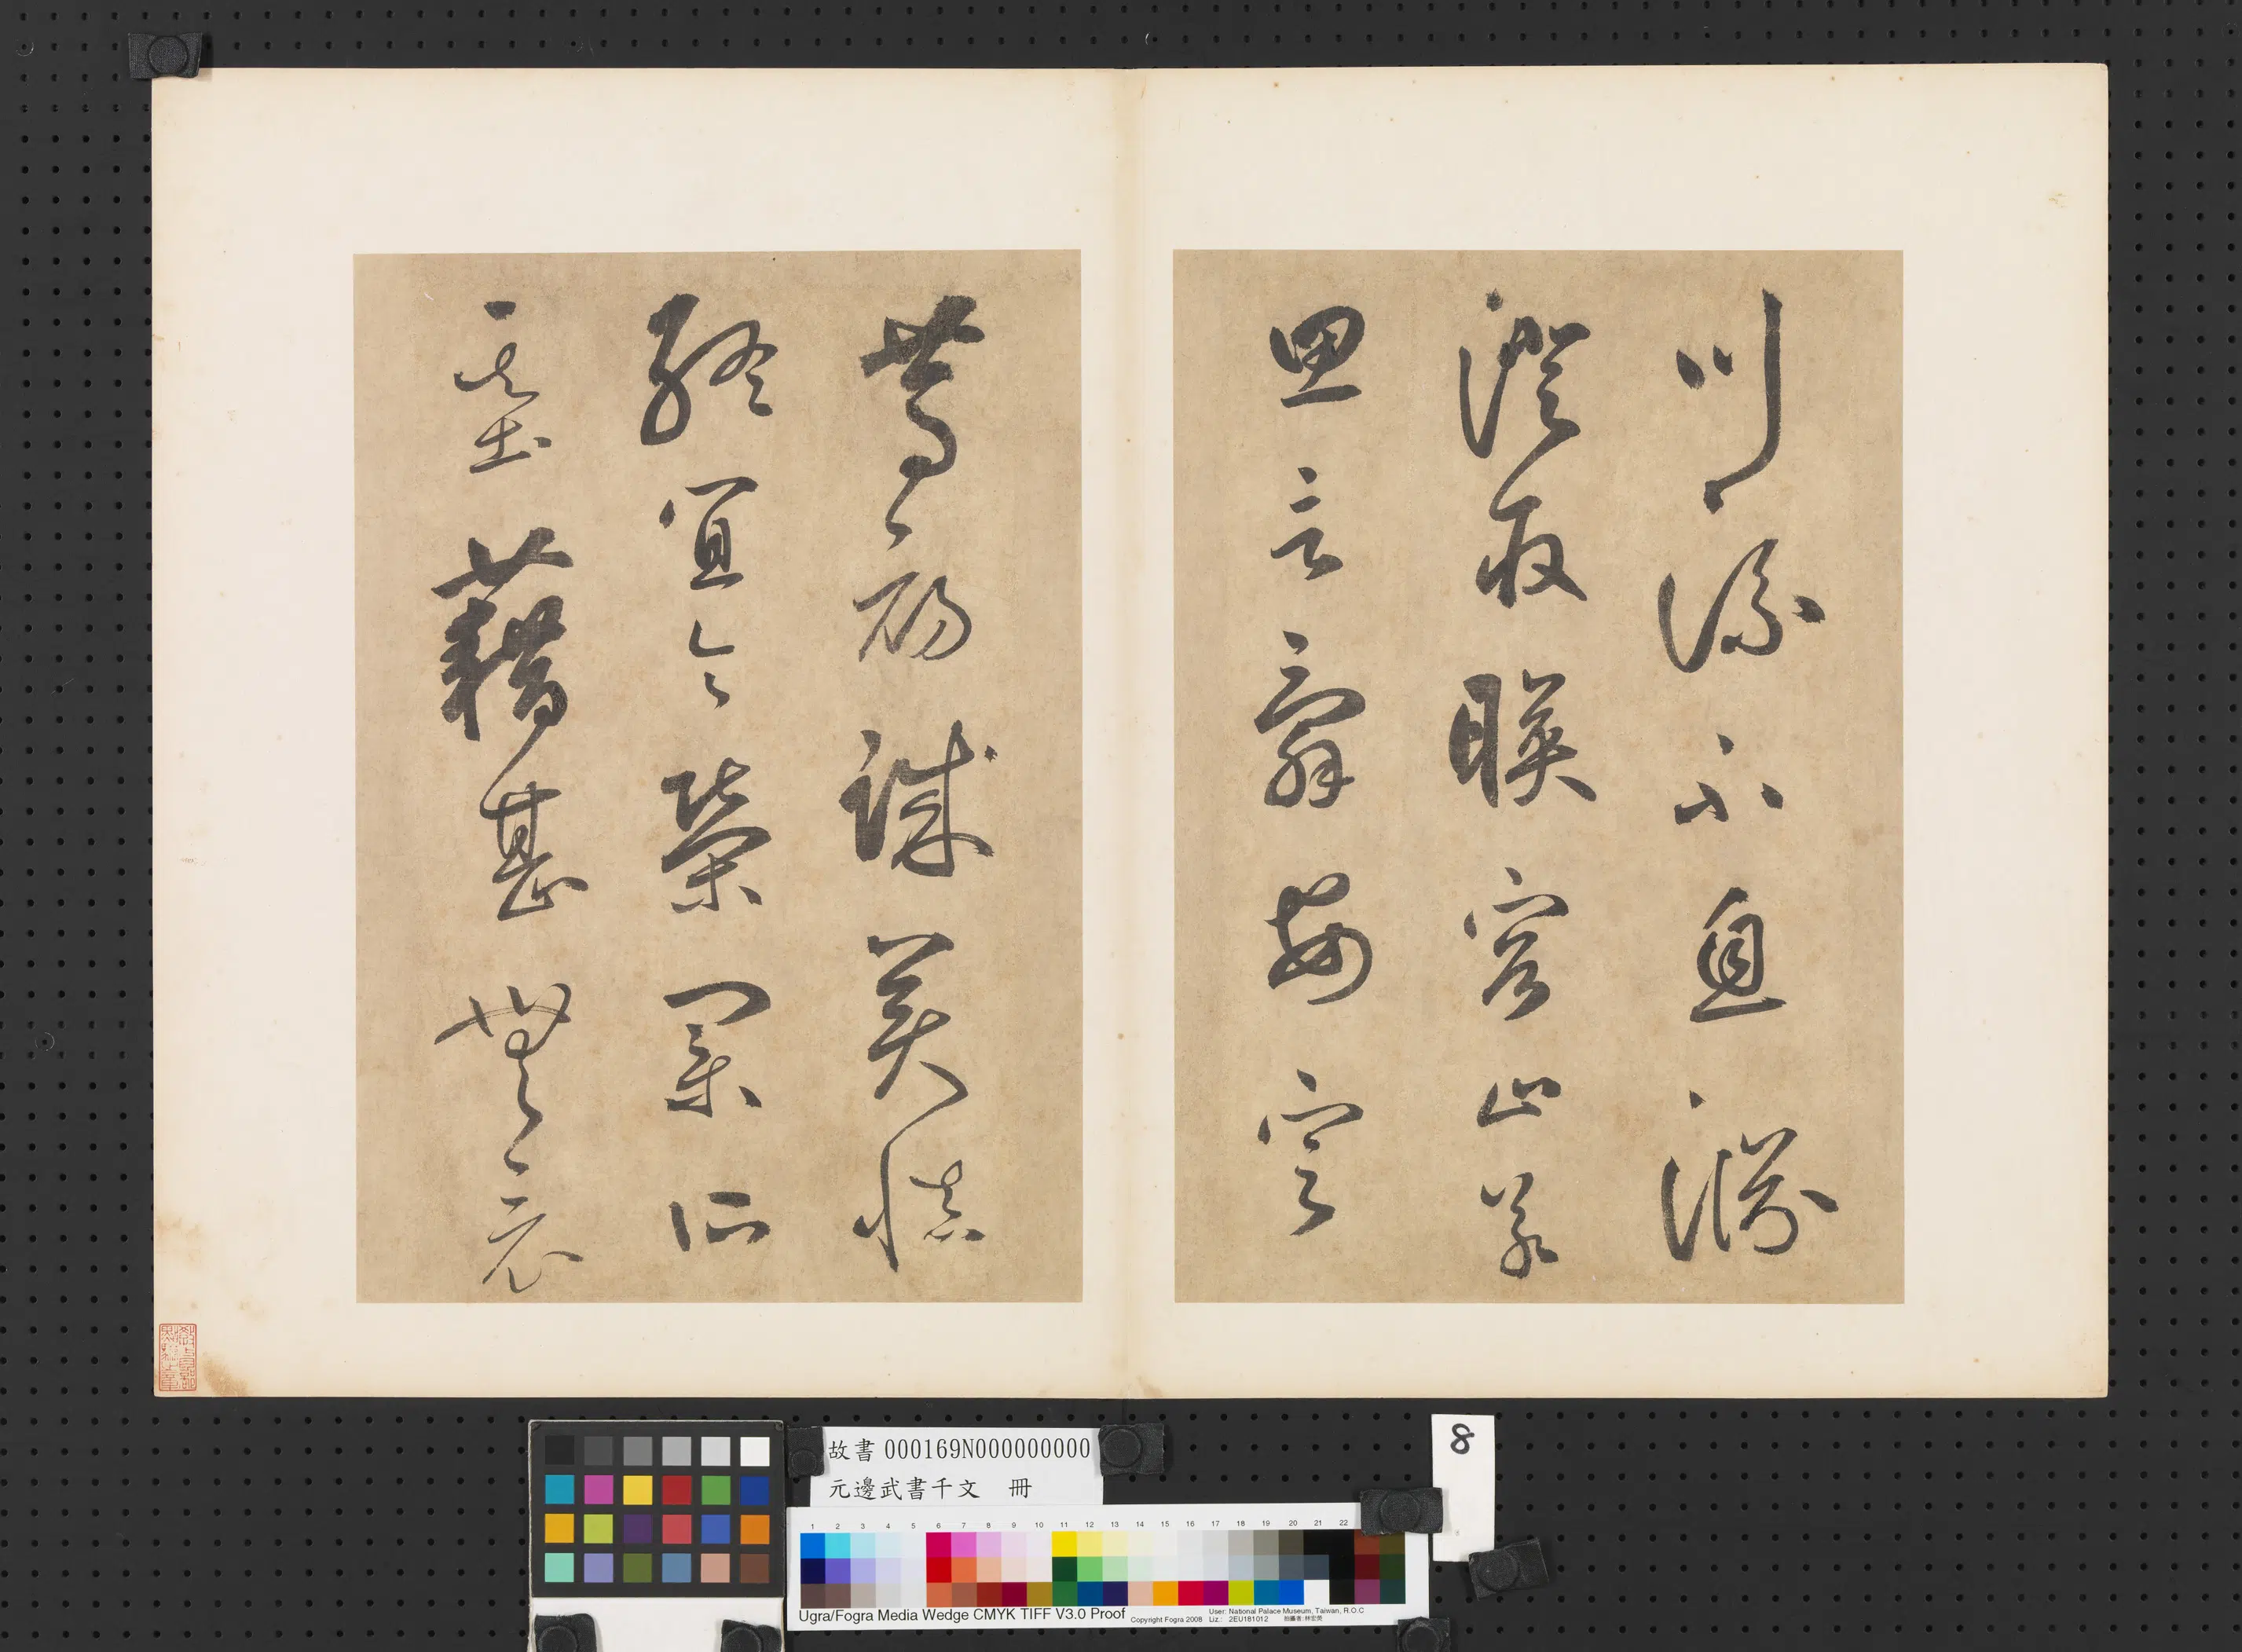 川流不息淵
澄取暎容止若
思言辭安定
篤初誠美慎
終宜令榮業所
基藉甚無竟
故書000169N000000000
元邊武書千文 冊
8
1 2 3 4 5 6 7 8 9 10 11 12 13 14 15 16 17 18 19 20 21 22
Ugra/Fogra Media Wedge CMYK TIFF V3.0 Proof
Copyright Fogra 2008
User: National Palace Museum, Taiwan, R.O.C
Liz.: 2EU181012